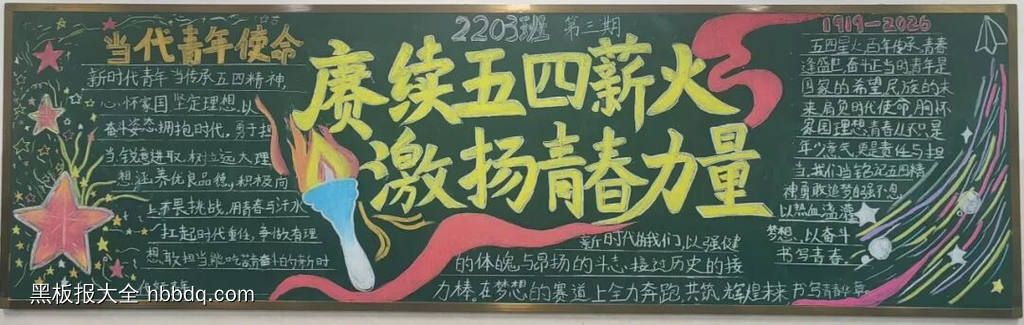 2203班 第三期
赓续五四薪火
激扬青春力量
当代青年使命
新时代青年当传承五四精神,
心怀家国坚定理想,以
奋斗姿态拥抱时代,勇于担
当,锐意进取,树立远大理
想,涵养优良品德,积极向
上不畏挑战,用青春与汗水
扛起时代重任,争做有理
想敢担当能吃苦肯奋斗的新时
1919—2026
五四星火百年传承,青春
逢盛世奋斗正当时青年是
国家的希望民族的未
来肩负时代使命,胸怀
家国理想,青春从不只是
年少意气,更是责任与担
当,我们当铭记五四精
神勇敢追梦自强不息,
以热血滋灌
梦想,以奋斗
书写青春。
新时代的我们,以强健
的体魄与昂扬的斗志,接过历史的接
力棒。在梦想的赛道上全力奔跑,共筑辉煌未来,书写青春华章。
黑板报大全 hbbdq.com